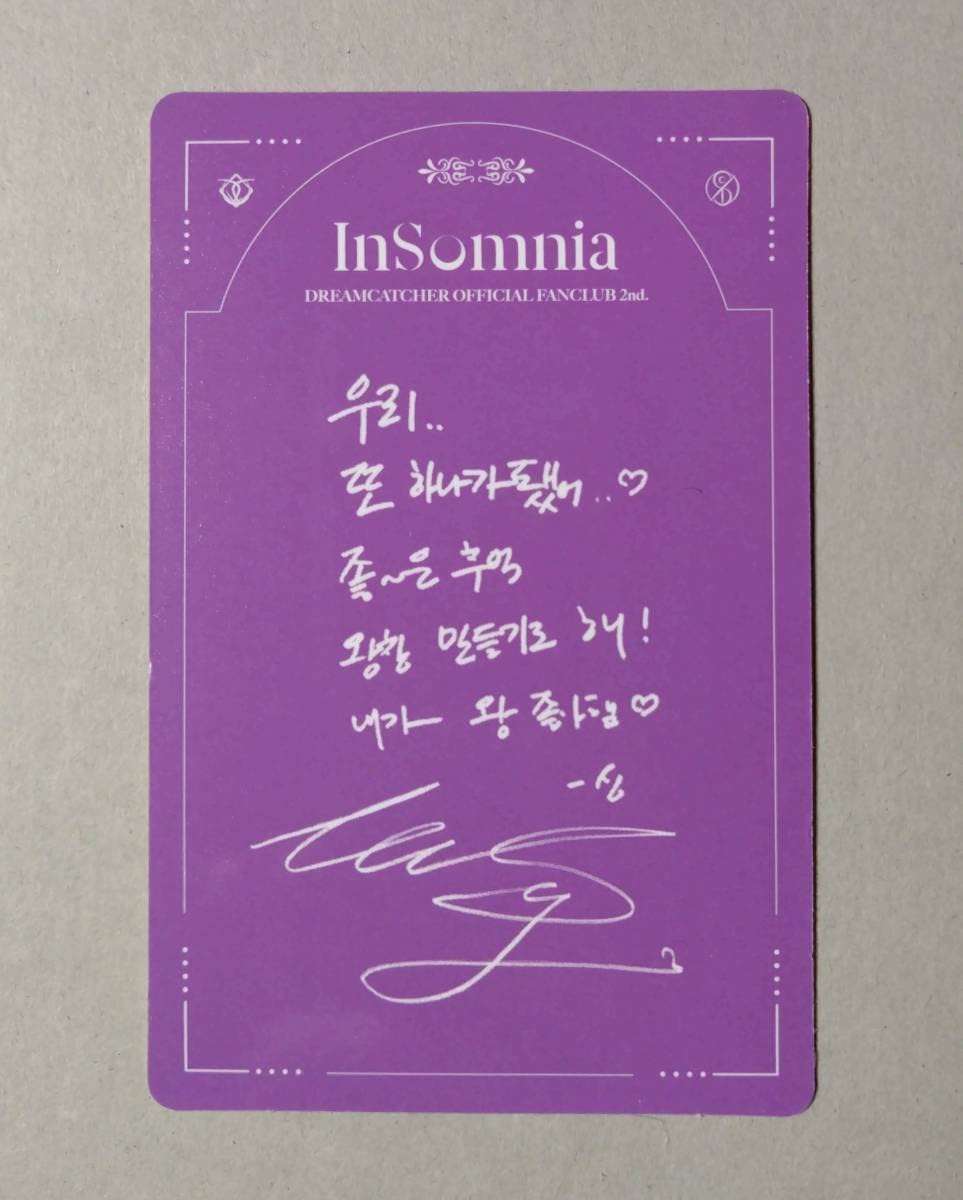 InSomnia
DREAMCATCHER OFFICIAL FANCLUB 2nd.
우리..
또 하나가 됐어..♡
좋~은 추억
왕창 만들기로 해!
내가 왕 좋아함♡
-싱